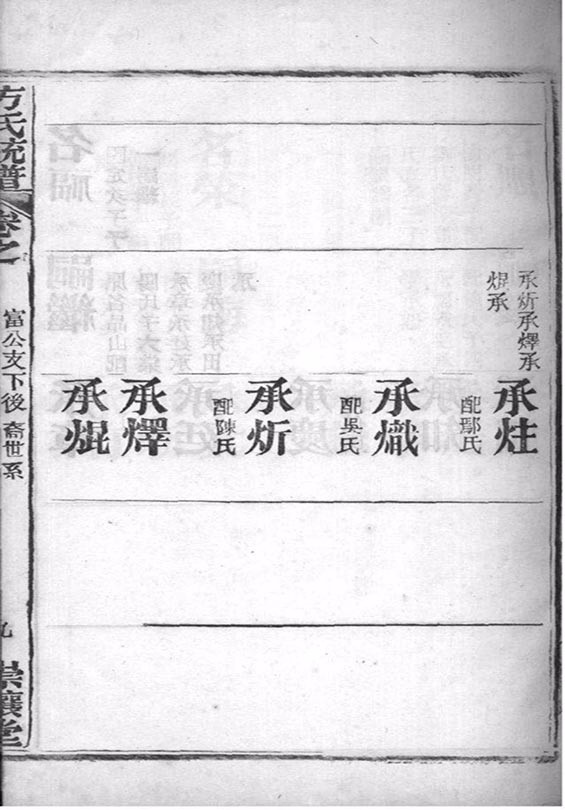 承炘承燡承
焜承
承炷
配鄢氏
承熾
配吳氏
承炘
配陳氏
承燡
承焜
方氏統譜
卷之
富公支下後裔世系
九
崇讓堂